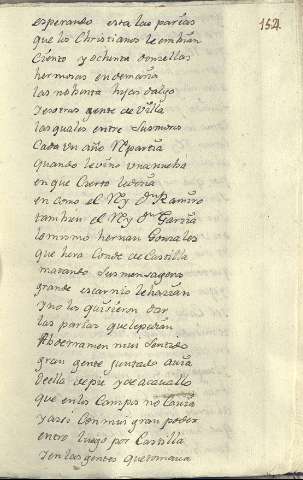 152
esperando esta las parias
que los Christianos le embian
Ciento y ochenta donzellas
hermosas en demasia
las nobenta hijas dalgo
y esotras gente de villa
las quales entre sus moros
Cada vn año Repartia
quando le vino vna nueba
en que Cierto le decia
en como el Rey Dn Ramiro
tambien el Rey Dn Garcia
lo mismo hernan Gonzales
que hera Conde de Castilla
matando sus mensageros
grande escarnio le hazian
y no los quisieron dar
las parias que le pedian
Abderramen mui sentido
gran gente juntado auia
della de pie y de acauallo
que en los Campos no Cauia
y assi Con mui gran poder
entro luego por Castilla
y en las gentes que tomaua